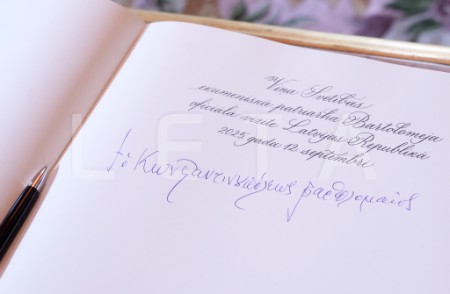 Viņa Svētības
ekumeniskā patriarha Bartolomeja
oficiālā vizīte Latvijas Republikā
2025. gada 12. septembrī
† ὁ Κωνσταντινουπόλεως Βαρθολομαῖος
LETA